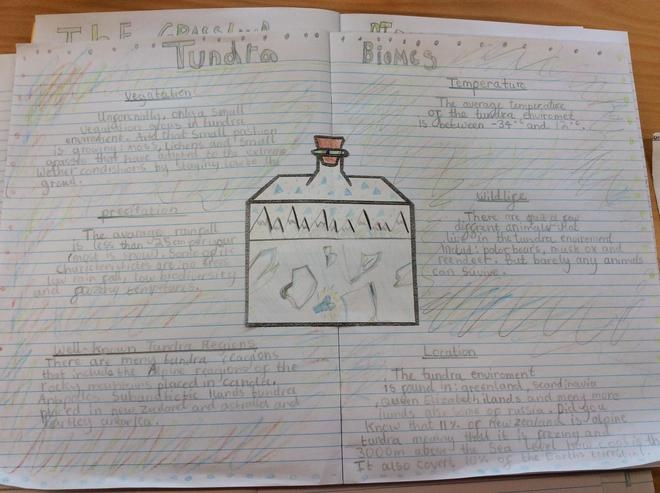 THE GRASSLAND
Tundra Biomes
Vegatation
only a small
Vegatation grows in tundra
enviroment. And that small
is growing moss, lichens and small
grasses that have adapted to the extreme
Wether condishions by staying low to the
Precipitation
The avarage rainfall
is less than 25cm per year
(most is snow). Some of its
Charicteristics are no trees
low rain fall, low biodiversity
and temptures.
Well-known Tundra Regions
There are meny tundra reagions
that the Alpine reagions of the
rocky mountians placed in canada,
Subantarctic Ilands tundra
placed in new zealand and and
antarica.
Temperature
The average temperature
of the tundra enviromet
is between -34°c and 12°c.
Wildlife
There are quite a few
diffrent animals that
live in the tundra enviroment
Includ: polar bears, musk ox and
reindeer. But barely any animals
can survive.
Location
The tundra enviroment
is found in: greenland, scandinavia
Queen Elizabeth ilands and meny more
ilands als some of russia. Did you
Know that 11% of new zealand is alpine
tundra meaning that it is freezing and
3000m above the Sea level
It also covers 10% of the Earths